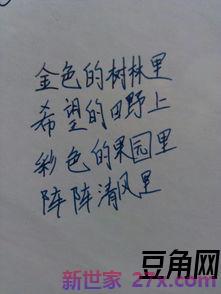 金色的树林里
希望的田野上
彩色的果园里
阵阵清风里
豆角网
新世家 27x.com